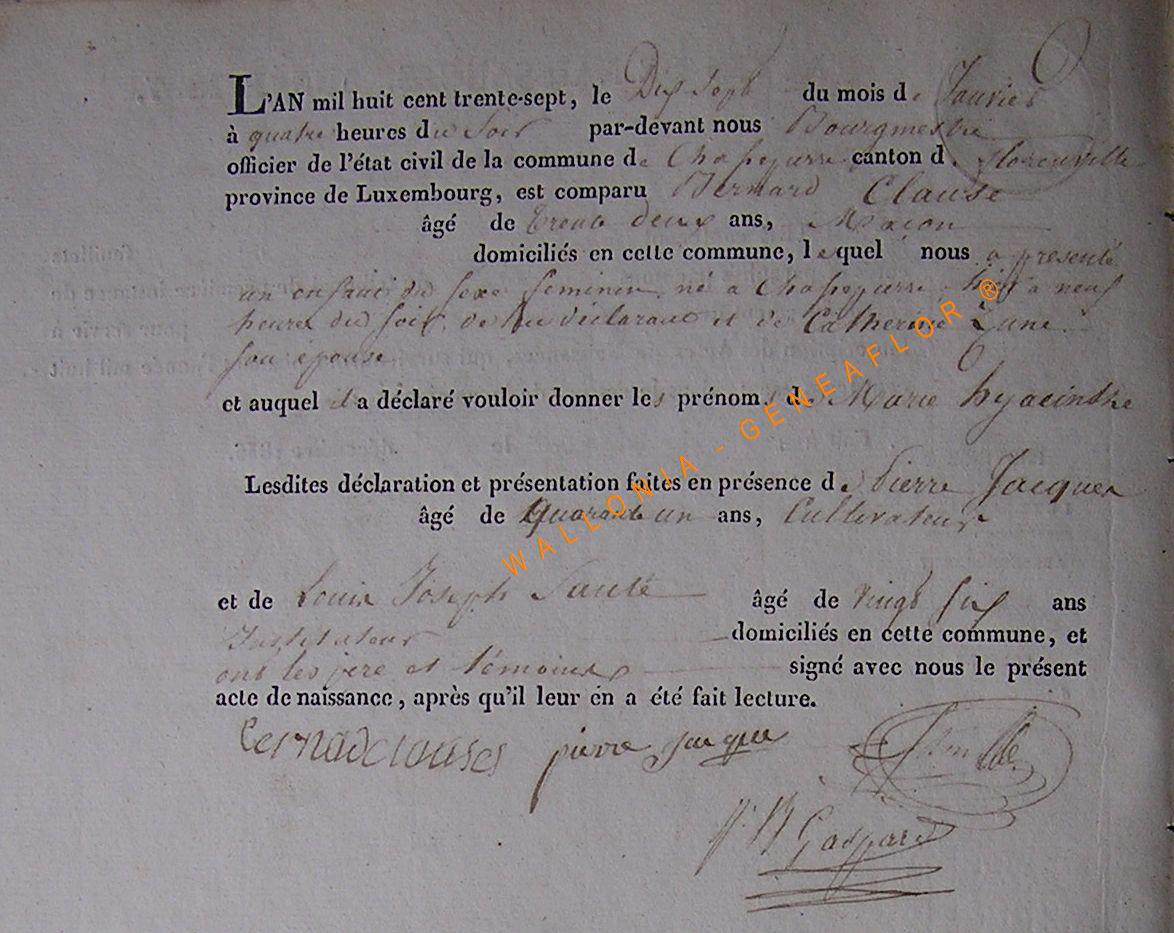 L'AN mil huit cent trente-sept, le Dix Sept du mois de Janvier
à quatre heures du Soir par-devant nous Bourgmestre
officier de l'état civil de la commune de Chapepierre canton de florenville
province de Luxembourg, est comparu Bernard Clause
âgé de trente deux ans, Macon
domiciliés en cette commune, lequel nous a présenté
un enfant du Sexe feminin né a Chapepierre hier à neuf
heures du Soir, de lui déclarant et de Catherine
Son épouse
et auquel il a déclaré vouloir donner les prénoms de Marie hyacinthe
Lesdites déclaration et présentation faites en présence de Pierre Jacques
âgé de Quarante un ans, Cultivateur
et de Louis Joseph âgé de vingt Six ans
Instituteur domiciliés en cette commune, et
ont les père et témoins signé avec nous le présent
acte de naissance, après qu'il leur en a été fait lecture.
pierre jacque
Gaspard
WALLONIA - GENEAFLOR ®